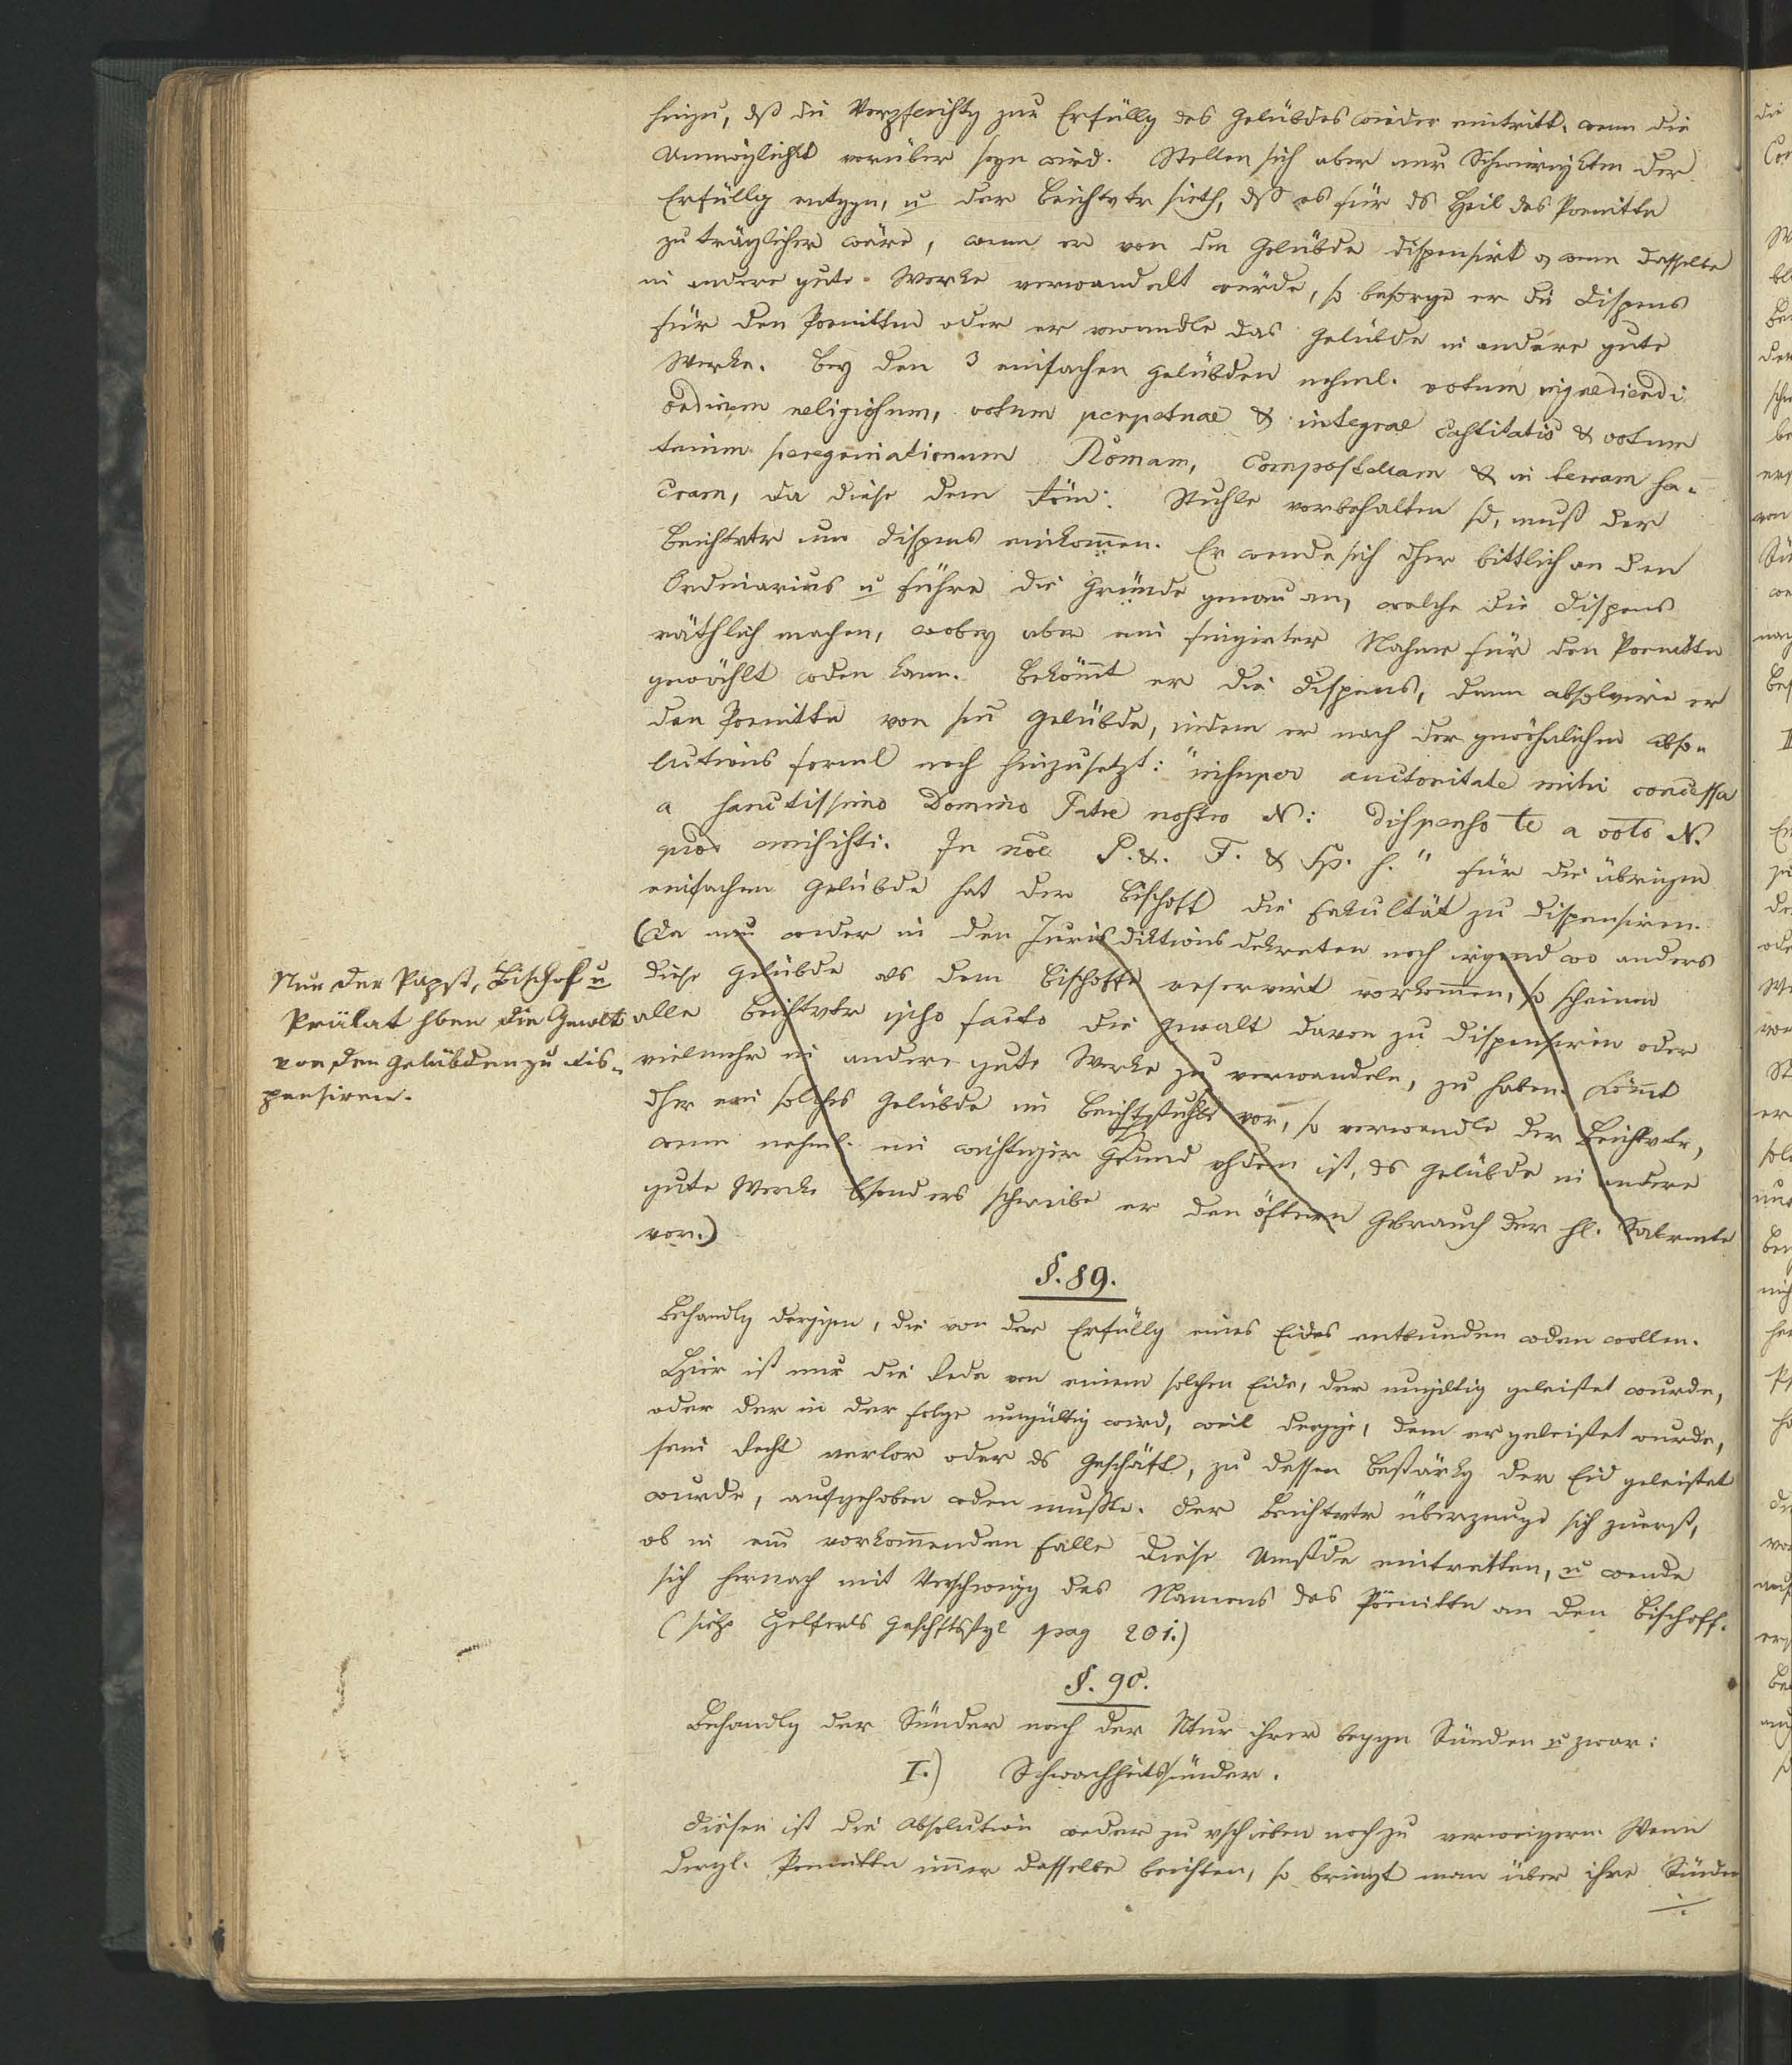 hinzu, dß die Verpflichtg zur Erfüllg des Gelübdes wieder eintritt, wenn die
Unmöglichkt vorüber seyn wird. Stellen sich aber nur Schwierigktn der
Erfüllg entggn, u der Beichtvtr sieht, dß es für ds Heil des Poenittn
zuträglicher wäre, wenn er von dem Gelübde dispensirt o, wenn dasselbe
in andere gute Werke verwandelt würde, so besorge er die Dispens
für den Poenittn oder er verwandle das Gelübde in andere gute
Werke. Bey den 3 einfachen Gelübden nehml. votum ingrediendi
ordinem religiosum, votum perpetuae & integrae castitatis & votum
trium peregrinationum Romam, Compostellam & in terram sa-
cram, da diese dem röm: Stuhle vorbehalten sd, muß der
Beichtvtr um Dispens einkom̄en. Er wende sich dher bittlich an den
Ordinarius u führe die Gründe genau an, welche die Dispens
räthlich machen, wobey aber ein fingirter Nahme für den Poenittn
gewählt wden kann. Bekōmt er die Dispens, dann absolvire er
den Poenittn von sm̄ Gelübde, indem er nach der gewöhnlichen Abso-
lutions forml noch hinzusetzt: "insuper auctoritate mihi concessa
a sanctissimo Domino Patre nostro N: dispenso te a voto N.
quod emisisti. In nōe P. &. F. & Sp. s." Für die übrigen
einfachen Gelübde hat der Bischoff die Fakultät zu dispensiren.
(Da nun weder in den Jurisdiktionsdekreten noch irgend wo anders
diese Gelübde als dem Bischoffe reservirt vorkom̄en, so scheinen
alle Beichtvtr ipso facto die Gewalt davon zu dispensiren oder
vielmehr in andere gute Werke zu verwandeln, zu haben. Kōmt
dher ein solches Gelübde im Beichtstuhle vor, so verwandle der Beichtvtr,
wenn nehml. ein wichtiger Grund vhden ist, ds Gelübde in andere
gute Werke bsonders schreibe er den öftern Gebrauch der hl. Sakrmte
vor.)
Nur der Papst, Bischof u
Prälat hben die Gewalt
von den Gelübden zu dis-
pensiren.
§. 89.
Behandlg derjgen, die von der Erfüllg eines Eides entbunden wden wollen.
Hier ist nur die Rede von einem solchen Eide, der ungiltig geleistet wurde,
oder der in der Folge ungültig wird, weil derjge, dem er geleistet wurde,
sein Recht verlor oder ds Geschäft, zu dessen Bestärkg der Eid geleistet
wurde, aufgehoben wden mußte. Der Beichtvtr überzeuge sich zuerst,
ob in em̄ vorkom̄enden Falle diese Umstde eintretten, u wende
sich hernach mit Verschweigg des Namens des Pönittn an den Bischoff.
(sieh Helferts Geschftsstyl pag 201.)
§. 90.
Behandlg der Sünder nach der Ntur ihrer beggn Sünden u zwar:
I.) Schwachheitssünder.
Diesen ist die Absolution weder zu vschieben noch zu verweigern. Wenn
dergl. Poenittn im̄er dasselbe beichten, so bringt man über ihre Sünden